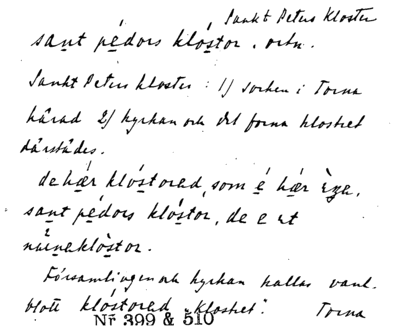 Sankt Peters Kloster
sant pédors klóstor, ortn.
Sankt Peters kloster: 1/ socken i Torna
härad 2/ kyrkan och det forna klostret
därstädes.
de hær klóstored, som é hær
sant pédors klóstor, de e et
klòstor.
Församlingen och kyrkan kallas vanl.
blott klóstored "Klostret". Torna
Nr 399 & 510